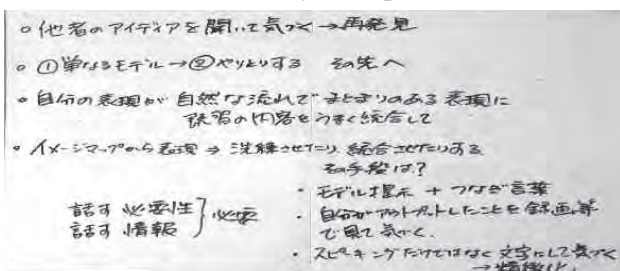 ○ 他者のアイディアを聞いて気づく→再発見
○ ①単なるモデル→②やりとりする その先へ
• 自分の表現が自然な流れでまとまりのある表現に
既習の内容をうまく統合して
• イメージマップから表現⇒洗練させたり、統合させたりする
その手段は?
• モデル提示 + つなぎ言葉
話す 必要性
話す 情報 } 必要
• 自分がアウトプットしたことを録画等
で見て気づく。
• スピーキングだけではなく文字にして気づく
→精緻化